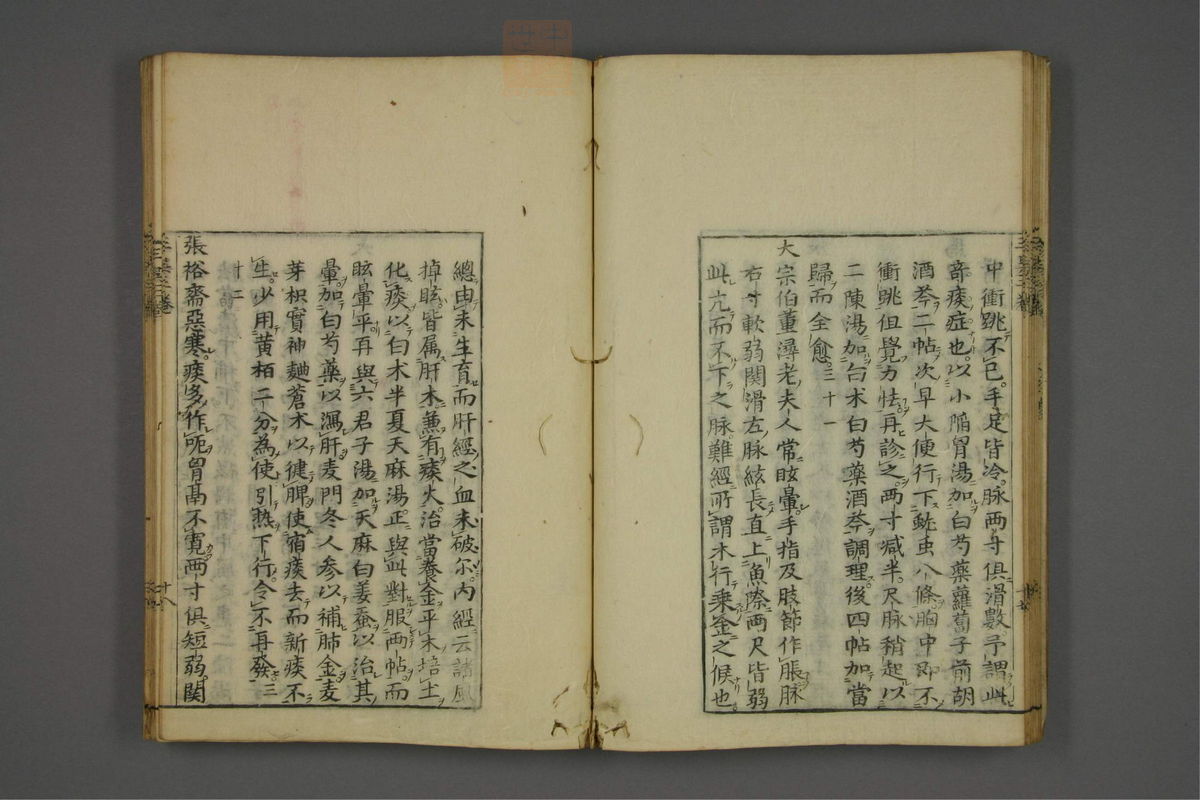 中衝跳不已手足皆冷脉兩寸俱滑數予謂此
奇痰症也以小陥胃湯加白芍藥蘿蔔子前胡
酒芩二帖次早大便行下蚘虫八條胸中即不
衝跳但覺力怯再診之兩寸減半尺脉稍起以
二陳湯加白朮白芍藥酒芩調理後四帖加當
歸而全愈三十一
大宗伯董潯老夫人常眩暈手指及肢節作脹脉
右寸軟弱関滑左脉絃長直上魚際兩尺皆弱
此亢而不下之脉難經所謂木行乘金之候也
總由未生育而肝經之血未破尓内經云諸風
掉眩皆属肝木兼有痰火治當養金平木培土
化痰以白朮半夏天麻湯正與此對服兩帖而
眩暈平再與六君子湯加天麻白姜蚕以治其
暈加白芍藥以瀉肝麦門冬人参以補肺金麦
芽枳實神麯蒼朮以健脾使宿痰去而新痰不
生少用黄栢二分為使引熱下行令不再發三
十二
張裕齋惡寒痰多作呃胃鬲不寛兩寸俱短弱関